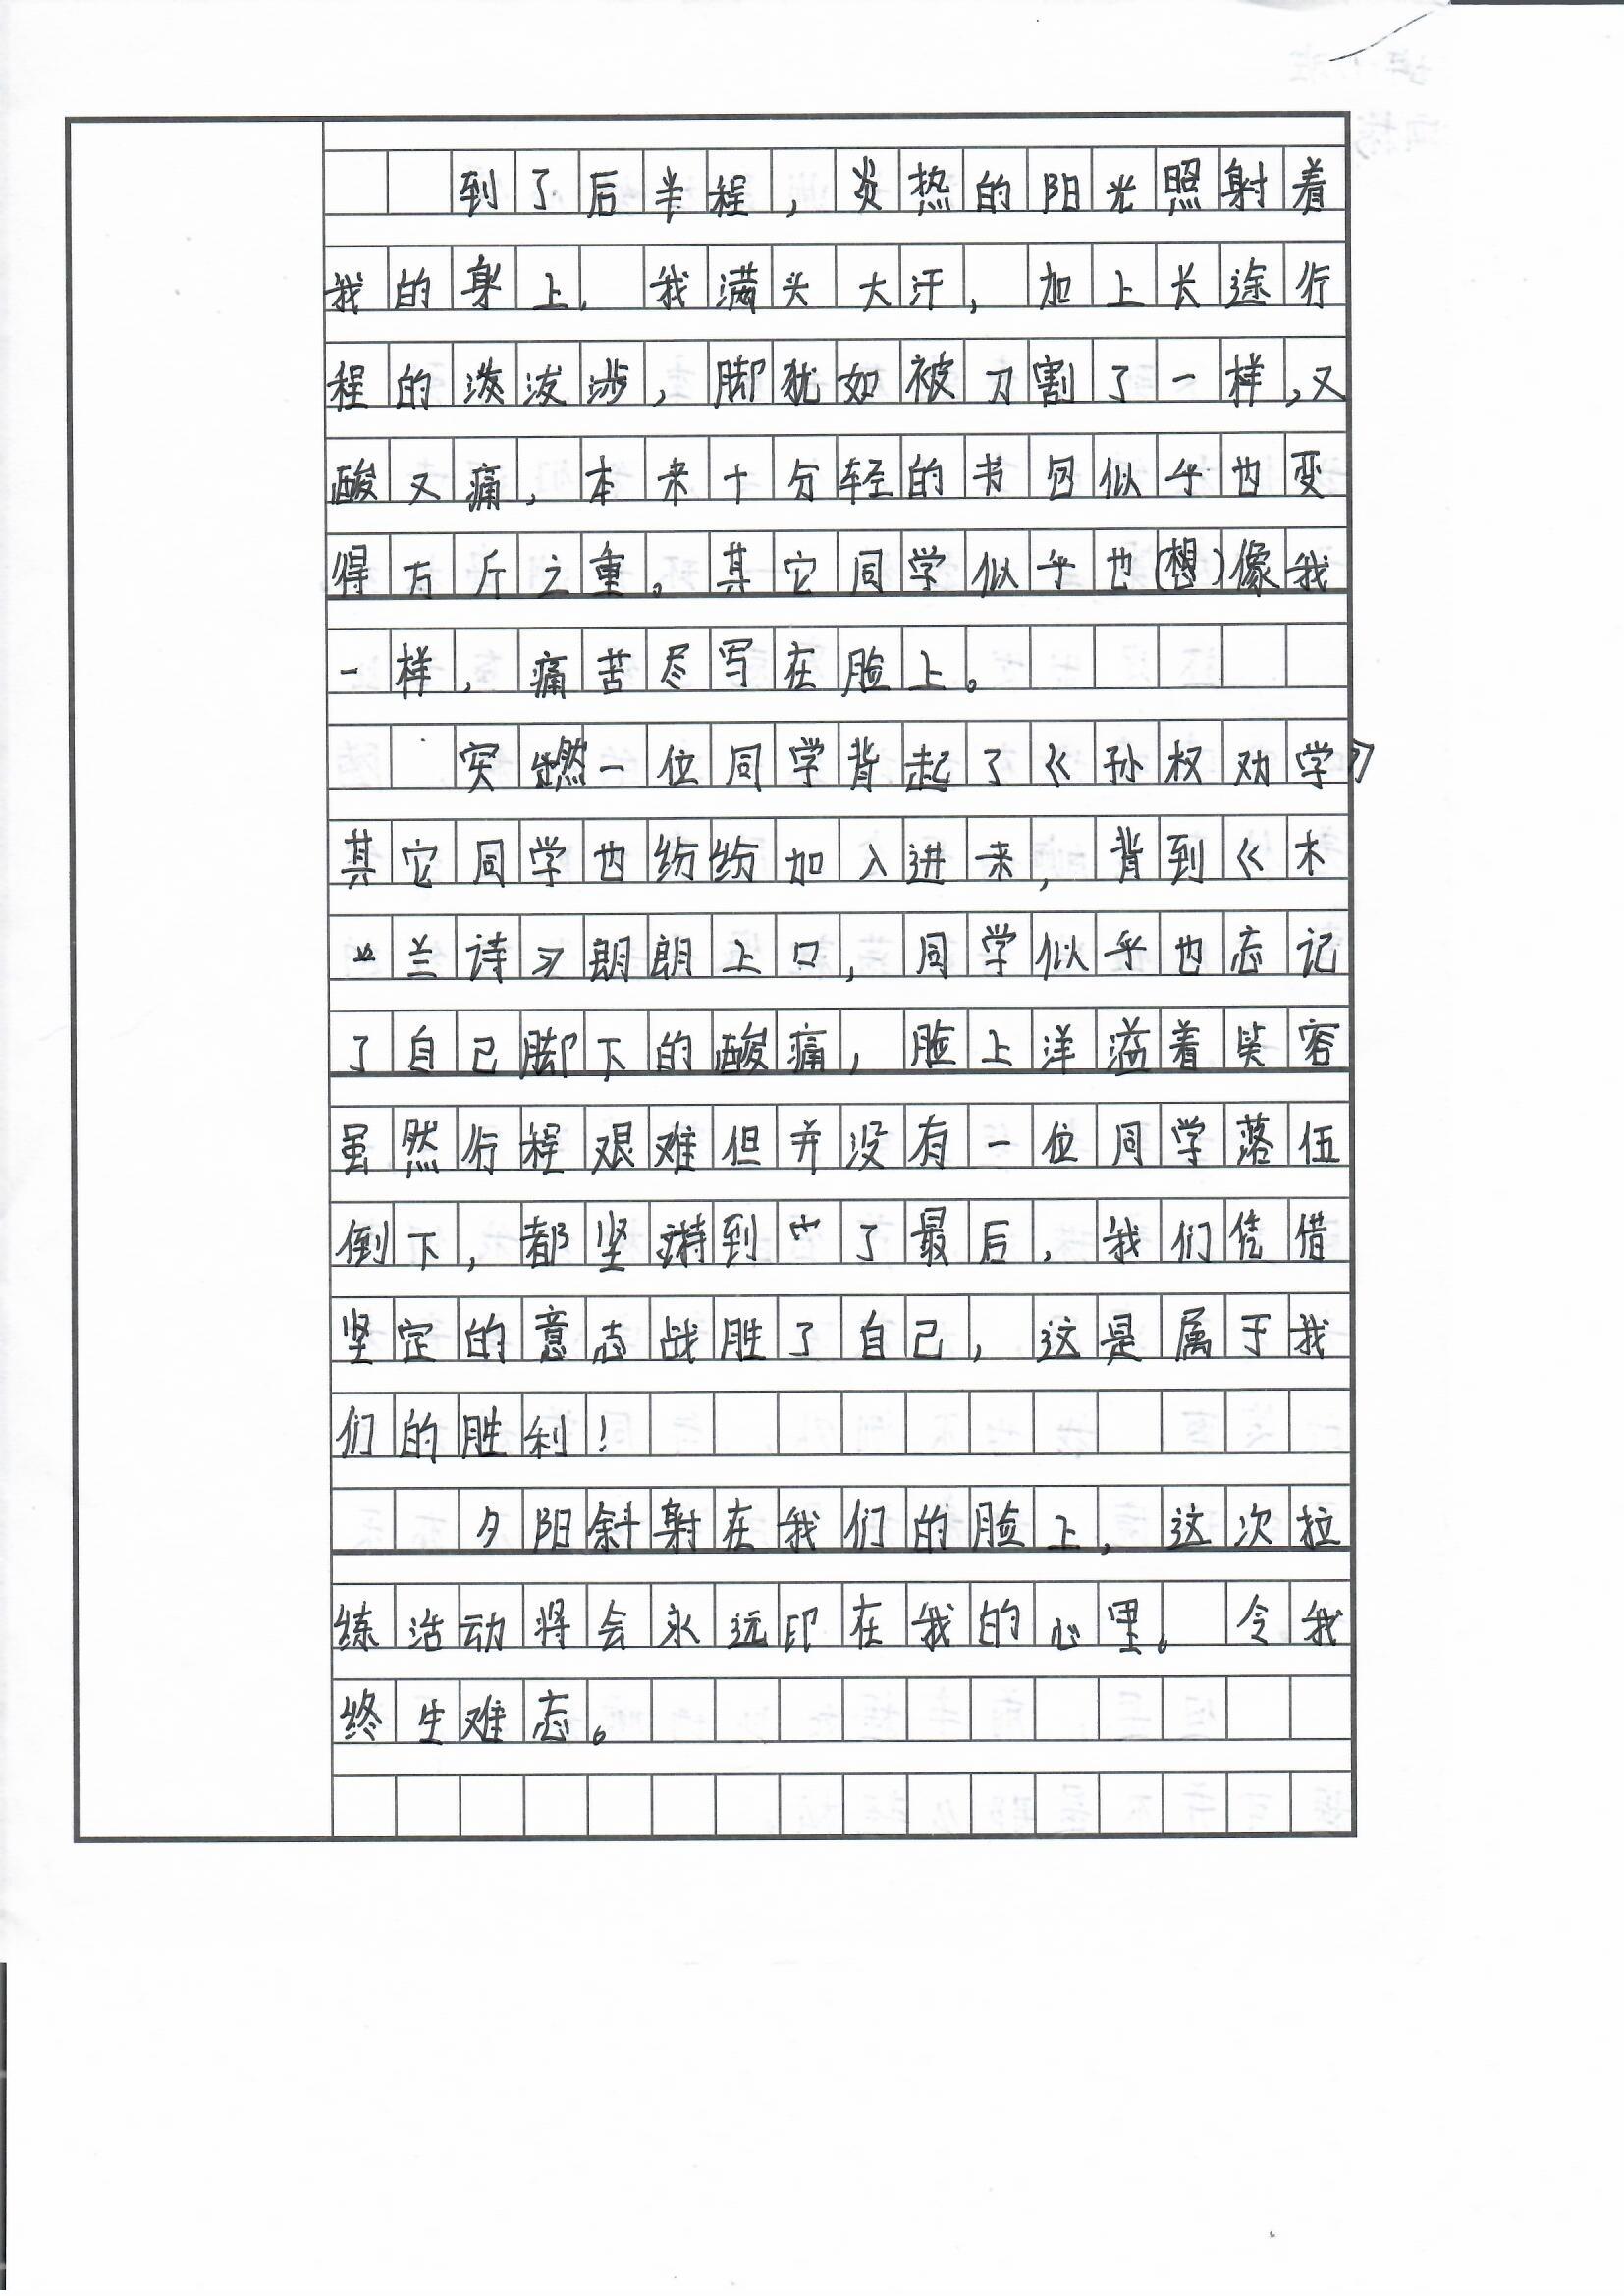 到了后半程，炎热的阳光照射着
我的身上，我满头大汗，加上长途行
程的泼泼涉，脚犹如被刀割了一样，又
酸又痛，本来十分轻的书包似乎也变
得万斤之重。其它同学似乎也(想)像我
一样，痛苦尽写在脸上。
突然一位同学背起了《孙权劝学》
其它同学也纷纷加入进来，背到《木
兰诗》朗朗上口，同学似乎也忘记
了自己脚下的酸痛，脸上洋溢着笑容
虽然行程艰难但并没有一位同学落伍
倒下，都坚持到了最后，我们凭借
坚定的意志战胜了自己，这是属于我
们的胜利！
夕阳斜射在我们的脸上，这次拉
练活动将会永远印在我的心里。令我
终生难忘。